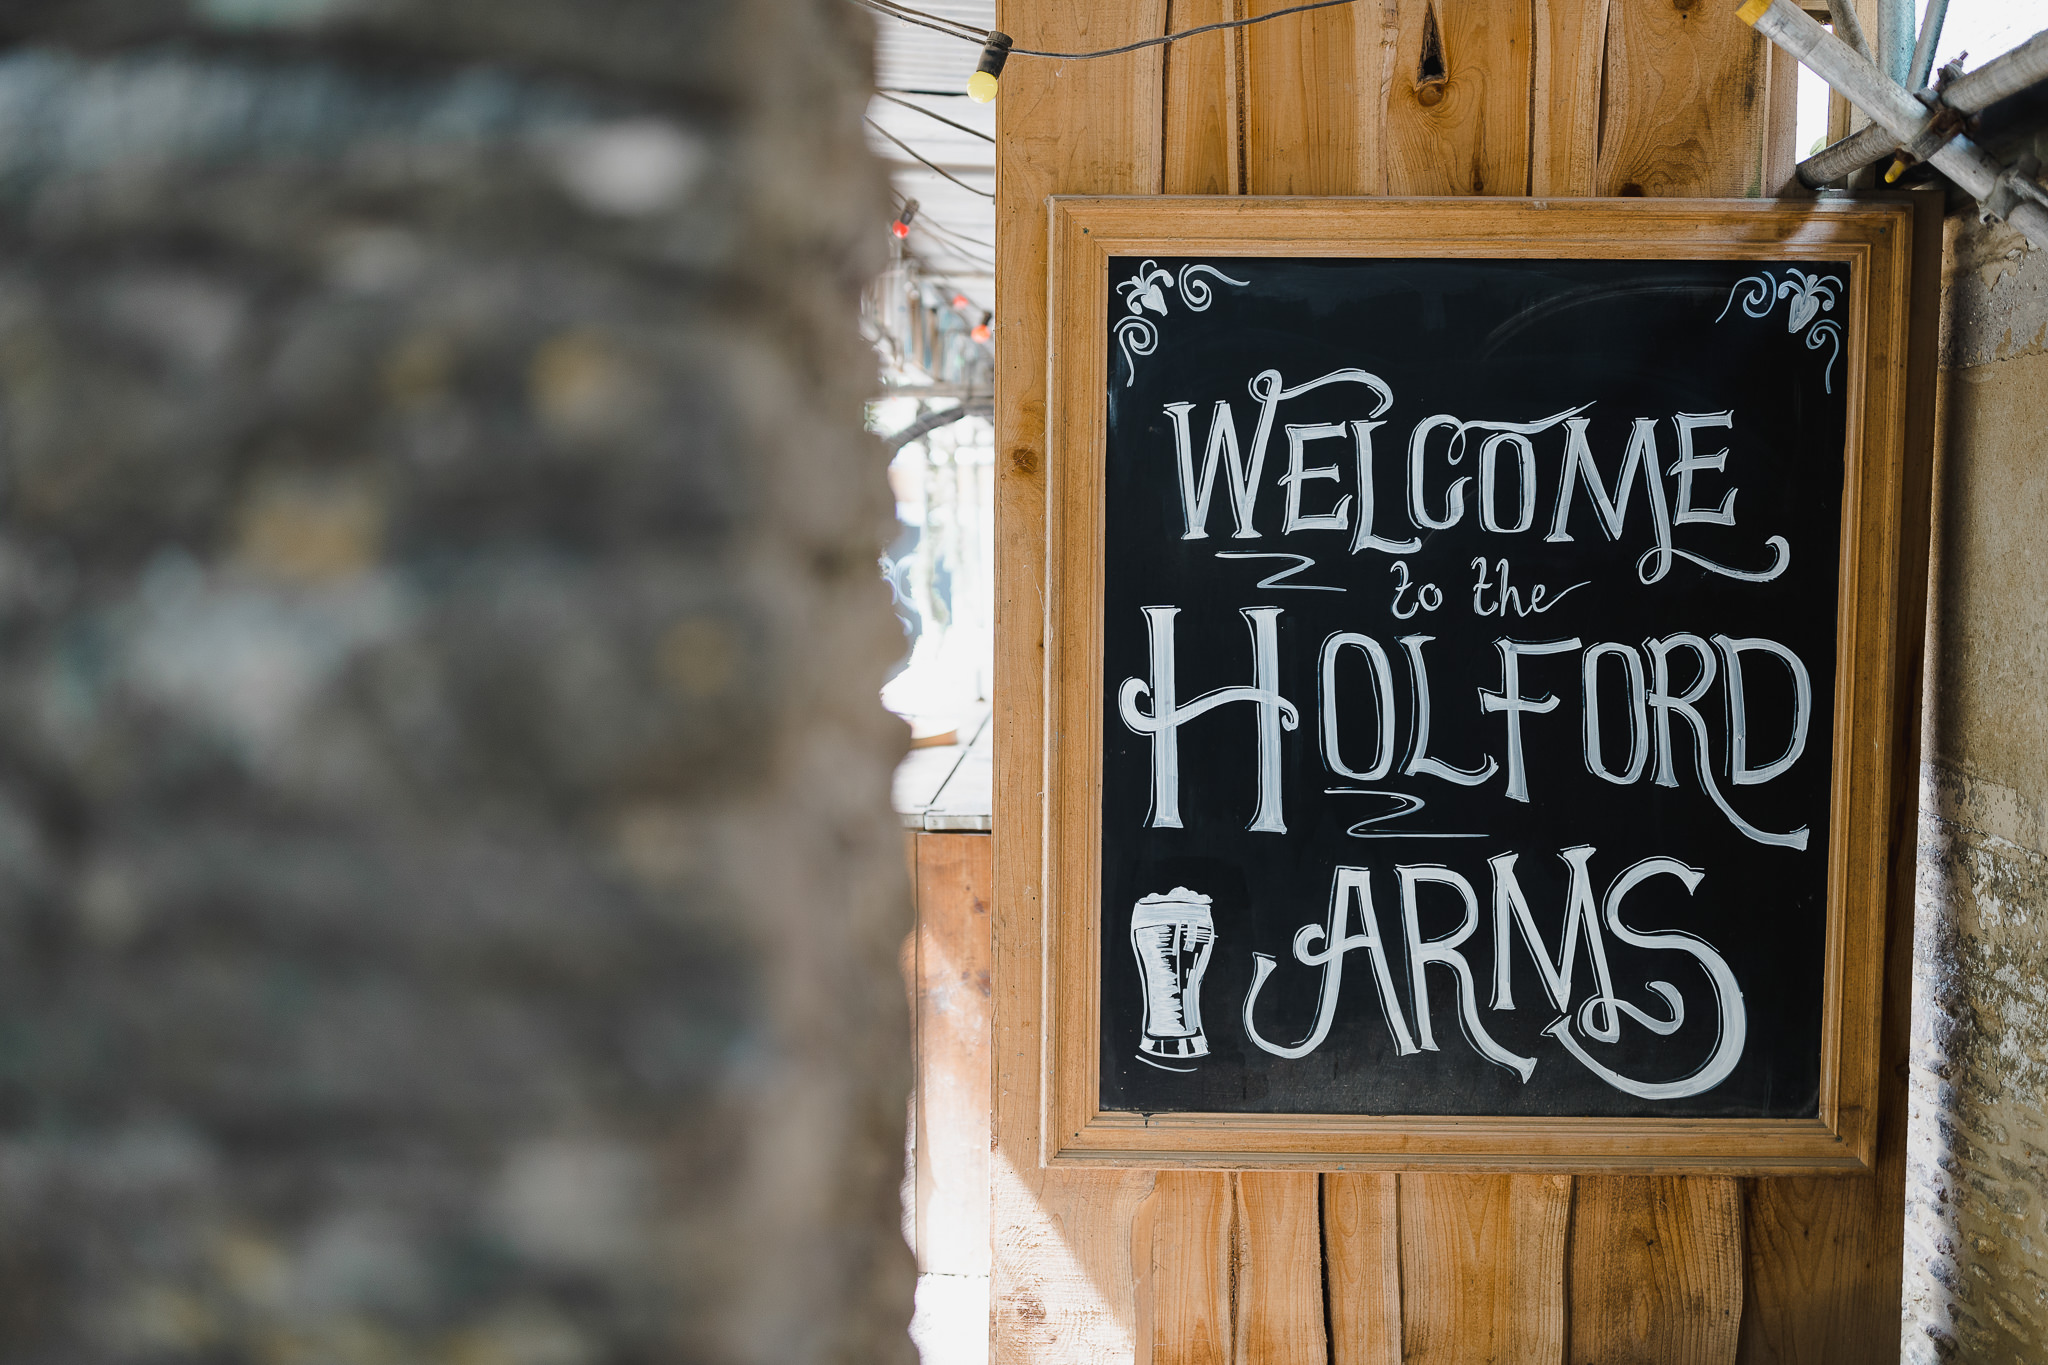 WELCOME
to the
HOLFORD
ARMS